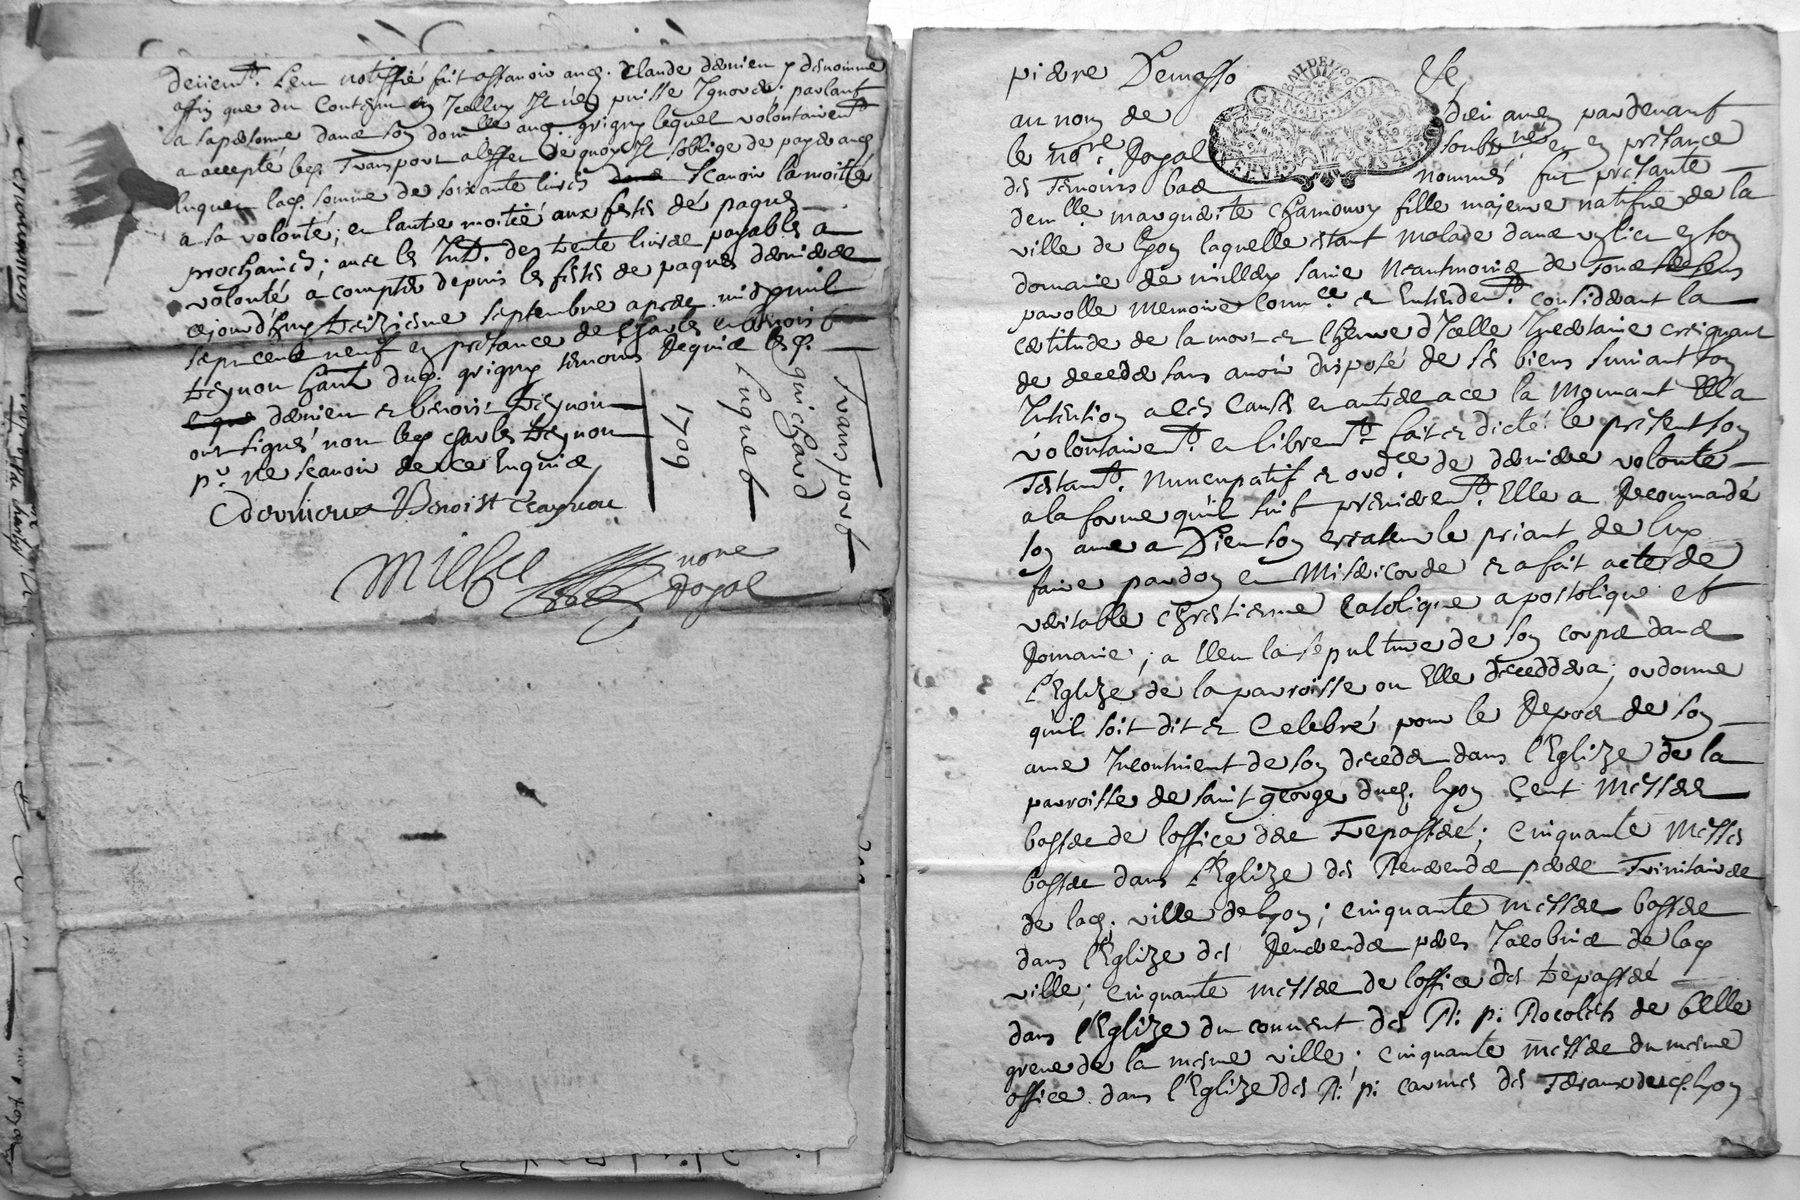 a esté notiffié fait assavoir aud. Claude dernieu y dénommé
affin que du Contenu en Icelluy Il n'en puisse Ignorer parlant
a sa personne dans son domille aud. grigny lequel volontairemt
a accepté led. Transport a l'effet de quoy Il s'oblige de payer aud.
luquet lad. somme de soixante livres Scavoir la moitié
a sa volonté; et l'autre moitié aux festes de paques
prochaines; avec les Int. des trente livres payables a
volonté a compter depuis les festes de paques dernieres
cejourd'huy treizieme septembre apres midy mil
sept cent neuf en presance de Charles et benoist
treynou dud. grigny temoins Requis led.
dernieu et benoist treynou
ont signés non led. Charles treynou
pr ne scavoir de ce Enquis
C dernieux Benoist Treynou
nore
Royal
Transport
guichard
Luquet
1709
pierre Demasso
GEN. LION
Au nom de Dieu amen pardevant
le nore. Royal soubsné et en présance
des Témoins bas nommés fut présante
demlle marguerite Chamouny fille majeure natifve de la
ville de lyon laquelle estant malade dans un lict en son
domaine de millery saine Néantmoins de Tous ses sens
parolle mémoire Connce. et Entendemt. considérant la
certitude de la mort et l'heure d'Icelle Incertaine creignant
de deceder sans avoir disposé de ses biens suivant son
Intention a ces Causes en
volontairemt. et libremt. fait et dicté le présent son
Testamt. Nuncupatif et ordce de derniere volonté
a la forme qu'il suit premieremt. Elle a Recommandé
son ame a Dieu son createur le priant de luy
faire pardon et Misericorde et a fait acte de
veritable chrestienne Catolique apostolique et
Romaine; a Eleu la sepulture de son corps dans
l'Eglize de la parroisse ou Elle deceddera; ordonne
qu'il soit dit et Celebré pour le Repos de son
ame Incontinent de son decedz dans l'Eglize de la
parroisse de saint george dud. lyon Cent Messes
basses de l'office des Trepasses; Cinquante Messes
basses dans l'Eglize des Reverends peres Trinitaires
de lad. ville de lyon; cinquante messes basses
dans l'Eglize des Reverends peres Jacobins de lad.
ville; cinquante messes de l'office des trepassés
dans l'Eglize du couvent des R. p. Recolets de belle
greve de la mesme ville; cinquante messes du mesme
office dans l'Eglize des R. p. Carmes des Terraux dud. lyon